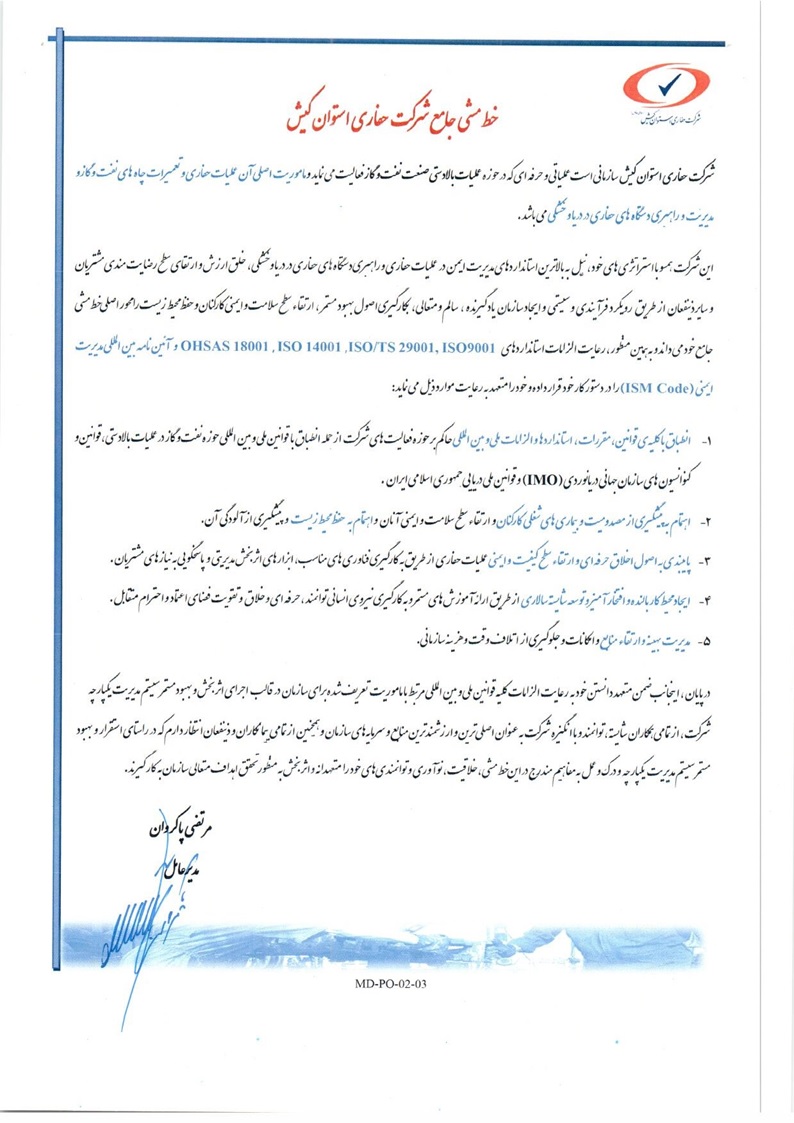 شرکت حفاری استوان کیش
خط مشی جامع شرکت حفاری استوان کیش
شرکت حفاری استوان کیش سازمانی است عملیاتی و حرفه ای که در حوزه عملیات بالادستی صنعت نفت و گاز فعالیت می نماید و ماموریت اصلی آن عملیات حفاری و تعمیرات چاه های نفت و گاز و
مدیریت و راهبری دستگاه های حفاری در دریا و خشکی می باشد .
این شرکت همسو با استراتژی های خود ، نیل به بالاترین استانداردهای مدیریت ایمن در عملیات حفاری و راهبری دستگاه های حفاری در دریا و خشکی، خلق ارزش و ارتقای سطح رضایت مندی مشتریان
و سایر ذینفعان از طریق رویکرد فرآیندی و سیستمی و ایجاد سازمان یادگیرنده ، سالم و متعالی، بکارگیری اصول بهبود مستمر ، ارتقاء سطح سلامت و ایمنی کارکنان و حفظ محیط زیست را محور اصلی خط مشی
جامع خود می داند و به همین منظور ، رعایت الزامات استانداردهای OHSAS 18001 , ISO 14001 ,ISO/TS 29001, ISO9001 و آئین نامه بین المللی مدیریت
ایمنی (ISM Code) را در دستور کار خود قرار داده و خود را متعهد به رعایت موارد ذیل می نماید:
۱- انطباق با کلیه ی قوانین، مقررات، استانداردها و الزامات ملی و بین المللی حاکم بر حوزه فعالیت های شرکت از جمله انطباق با قوانین ملی و بین المللی حوزه نفت و گاز در عملیات بالادستی، قوانین و
کنوانسیون های سازمان جهانی دریانوردی (IMO) و قوانین ملی دریایی جمهوری اسلامی ایران .
۲- اهتمام به پیشگیری از مصدومیت و بیماری های شغلی کارکنان و ارتقاء سطح سلامت و ایمنی آنان و اهتمام به حفظ محیط زیست و پیشگیری از آلودگی آن.
۳- پایبندی به اصول اخلاق حرفه ای و ارتقاء سطح کیفیت و ایمنی عملیات حفاری از طریق به کارگیری فناوری های مناسب، ابزارهای اثربخش مدیریتی و پاسخگویی به نیازهای مشتریان.
۴- ایجاد محیط کار بالنده و افتخار آمیز و توسعه شایسته سالاری از طریق ارائه آموزش های مستمر و به کارگیری نیروی انسانی توانمند، حرفه ای و خلاق و تقویت فضای اعتماد و احترام متقابل.
۵- مدیریت بهینه و ارتقاء منابع و امکانات و جلوگیری از اتلاف وقت و هزینه سازمانی.
در پایان ، اینجانب ضمن متعهد دانستن خود به رعایت الزامات کلیه قوانین ملی و بین المللی مرتبط با ماموریت تعریف شده برای سازمان در قالب اجرای اثربخش و بهبود مستمر سیستم مدیریت یکپارچه
شرکت، از تمامی همکاران شایسته، توانمند و با انگیزه شرکت به عنوان اصلی ترین و ارزشمندترین منابع و سرمایه های سازمان و همچنین از تمامی پیمانکاران و ذینفعان انتظار دارم که در راستای استقرار و بهبود
مستمر سیستم مدیریت یکپارچه و درک و عمل به مفاهیم مندرج در این خط مشی، خلاقیت، نوآوری و توانمندی های خود را متعهدانه و اثربخش به منظور تحقق اهداف متعالی سازمان به کار گیرند.
مرتضی پاکروان
مدیرعامل
MD-PO-02-03